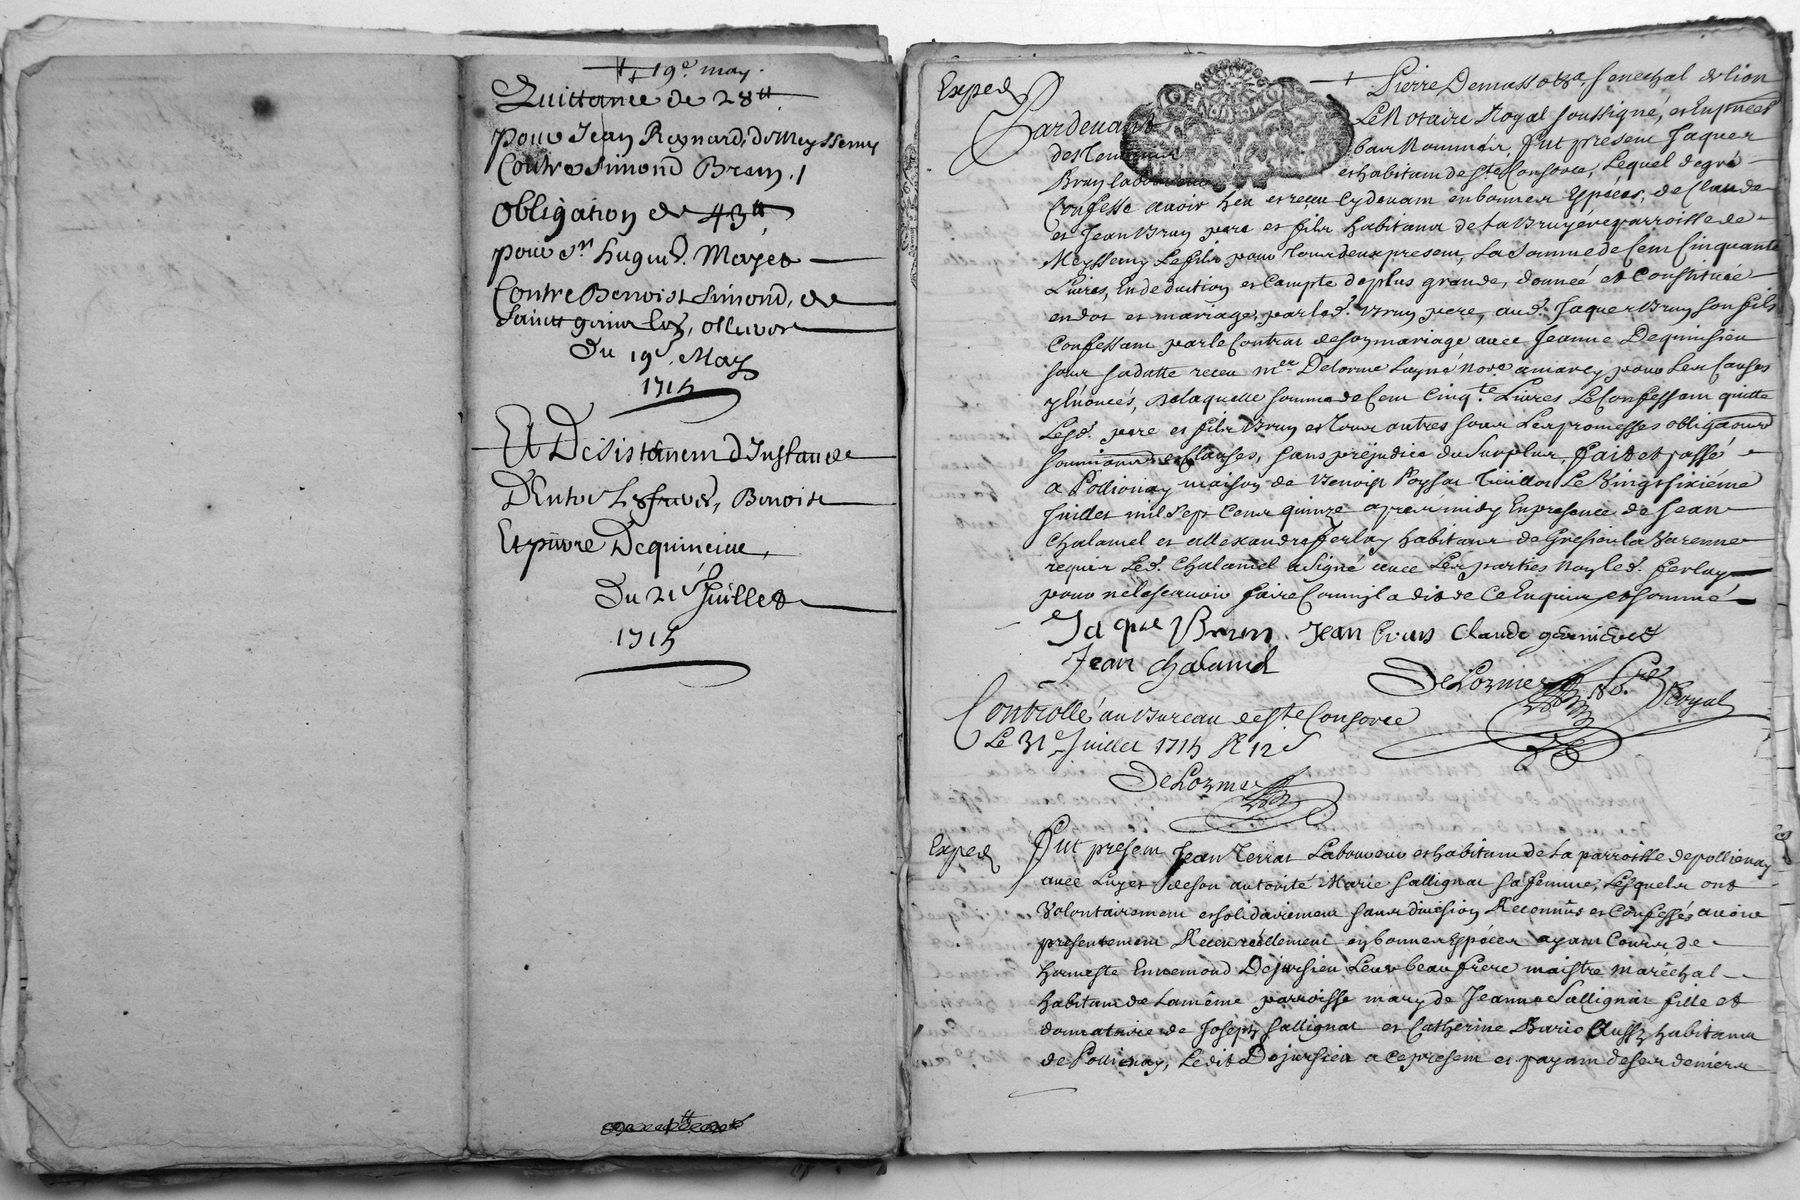 19e may
Quittance de 28tt
pour Jean Reynard, de Meyssemy
Contre Simond Brun
Obligation de 43tt
pour Sr hugue d. Mayet
Contre Benoist Simond, de
Saint
Du 19e May
1715
Et Desistement d'Instance
D'Entre Benoist
Et pierre Dequincieu
Du 21e Juillet
1715
Exped
Pardevant Le Notaire Royal soussigné, et En presence
des Temoins bas Nommés, fut present Jaques
Brun laboureur et habitant de Ste Consorce, Lequel de gré
Confesse avoir heu et receu cy devant en bonnes Especes, de Claude
et Jean Brun pere et fils habitans de La Bruyere parroisse de
Meyssemy Le fils pour tous deux present, La Somme de Cent Cinquante
Livres, En deduction et Compte de plus grande, donneé et Constitueé
en dot et mariage, par led. Brun pere, aud. Jaques Brun son fils
Confessant par le Contrat de son mariage avec Jeanne Dequinsieu
sous sa datte receu mer Delorme Layné Nore a marcy pour Les Causes
y Enoncés, De laquelle somme de Cent Cinqte Livres Le Confessant quitte
Lesd. pere et fils Brun et tous autres sous Les promesses obligaons
soumissions et Clauses, sans prejudice du Surplus, fait et passé
a Pollionay maison de Benoist Le Vingt sixiéme
Juillet mil Sept Cents quinze apres midy En presence de Jean
Chalamel et Allexandre ferlay habitans de Gresieu la Varenne
requis Led. Chalamel a signé avec Les parties Non led. ferlay
pour ne le scavoir faire Comm'il a dit de Ce Enquis et sommé
Jaque Brun Jean brun Claude
Jean Chalamel
DeLorme Nore Royal
Controllé au Bureau de Ste Consorce
Le 31e Juillet 1715 R 12 s
DeLorme
Exped
Fut present Jean Terras Laboureur et habitant de La parroisse de pollionay
avec Luy et de son autorité Marie Sallignat sa femme, Lesquels ont
Volontairement et solidairement sans division Reconnûs et Confessés avoir
presentement Receu réellement en bonnes Espéces ayant Cours de
honneste Ennemond Dejursieu Leur beau frere maistre maréchal
habitant de La même parroisse mary de Jeanne Sallignat fille et
donnataire de Joseph Sallignat et Catherine Bario Aussy habitans
de Pollionay, Ledit Dejursieu a ce present et payant de ses deniers